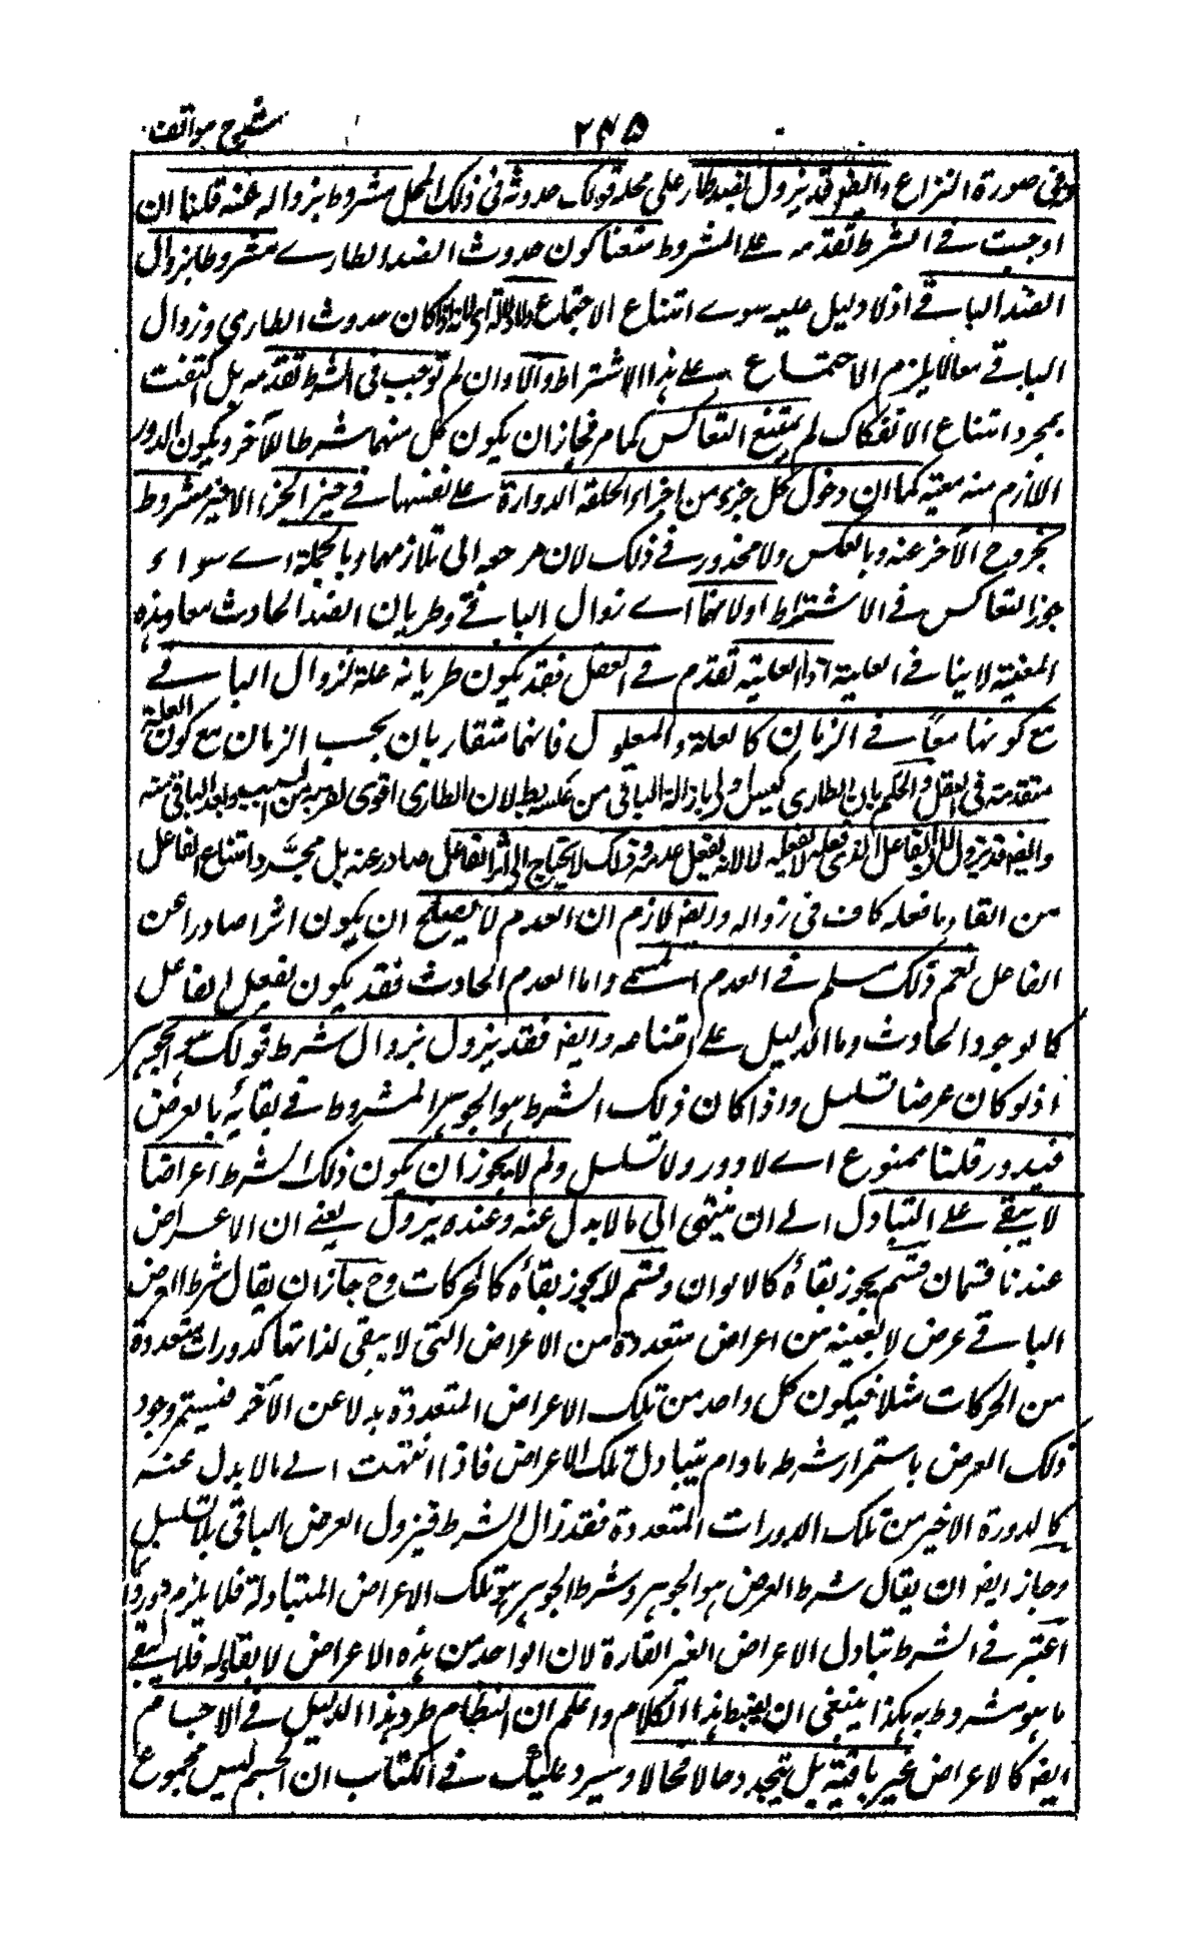 شرح مواقف
٢٤٥
وفي صورة النزاع وايضا قد يزول بضد طار على محله قولك حدوثه في ذلك المحل مشروط بزواله عنه قلنا ان
اوجبت في الشرط تقدمه على المشروط منعنا كون حدوث الضد الطارے مشروطا بزوال
الضد الباقے اذ لا دليل عليه سوے امتناع الاجتماع ولا دلالة اى لانه اذا كان حدوث الطاري وزوال
الباقے معا لا يلزم الاجتماع على هذا الاشتراط والا وان لم توجب في الشرط تقدمه بل اكتفت
بمجرد امتناع الانفكاك لم يمتنع التعاكس كما مر فجاز ان يكون كل منهما شرطا للآخر ويكون الدور
اللازم منه معية كما ان دخول كل جزء من اجزاء الحلقة الدوارة على نفسها في حيز الجزء الاخير مشروط
بخروج الآخر عنه وبالعكس ولا محذور في ذلك لان مرجعه الى تلازمهما وبالجملة اے سواء
جوز التعاكس في الاشتراط او لا فهما اے زوال الباقے وطريان الضد الحادث معا وهذه
المعية لا ينافے العلية اذ العلية تقدم في العقل فقد يكون طريانه علة لزوال الباقے
مع كونهما معا في الزمان كالعلة والمعلول فانهما متقاربان بحسب الزمان مع كون العلة
متقدمة في العقل والحكم بان الطاري ليس اولى بازالة الباقي من عكسه باطل لان الطارى اقوى لقربه من السبب وبعد الباقي منه
وايضا قد يزول الفاعل الذى فعله لا بفعله لا لانه يفعل عدمه وذلك لا يحتاج الى اثر الفاعل صادر عنه بل مجرد امتناع الفاعل
من القاء ما فعله كاف في زواله وايضا لازم ان العدم لا يصلح ان يكون اثرا صادرا عن
الفاعل نعم ذلك مسلم في العدم المستمر واما العدم الحادث فقد يكون بفعل الفاعل
كالوجود الحادث وما الدليل على امتناعه وايضا فقد يزول بزوال شرط قولك هو الجوهر
اذ لو كان عرضا تسلسل واذا كان ذلك الشرط هو الجوهر المشروط في بقائه بالعرض
فيدور قلنا ممنوع اے لا دور ولا تسلسل ولم لا يجوز ان يكون ذلك الشرط اعراضا
لا يبقے على التبادل الى ان ينتهى الى ما لا بدل عنه وعنده يزول يعنے ان الاعراض
عندنا قسمان قسم يجوز بقاؤه كالالوان وقسم لا يجوز بقاؤه كالحركات وح جاز ان يقال شرط العرض
الباقے عرض لا بعينه من اعراض متعددة من الاعراض التى لا يبقى لذاتها كدورات متعددة
من الحركات مثلا فيكون كل واحد من تلك الاعراض المتعددة بدلا عن الآخر فيستمر وجود
ذلك العرض باستمرار شرطه ما دام يتبادل تلك الاعراض فاذا انتهت الى ما لا بدل عنه
كالدورة الاخير من تلك الدورات المتعددة فقد زال الشرط فيزول العرض الباقي بلا تسلسل
وجاز ايضا ان يقال شرط العرض هو الجوهر وشرط الجوهر هو تلك الاعراض المتبادلة فلا يلزم دور وانما
اعتبر في الشرط تبادل الاعراض الغير القارة لان الواحد من هذه الاعراض لا بقاء له فلا يبقے
ما هو مشروط به هكذا ينبغى ان يضبط هذا الكلام واعلم ان النظام طرد هذا الدليل في الاجسام
ايضا كالاعراض غير باقية بل يتجدد حالا فحالا وسيرد عليك في الكتاب ان الجسم ليس مجموع